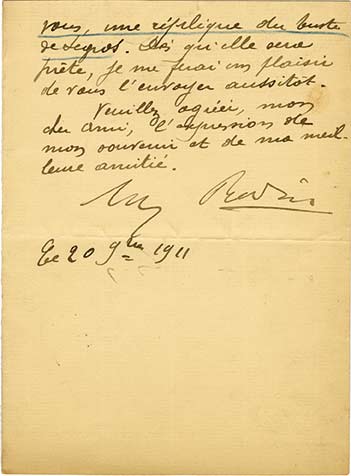 vous, une réplique du buste
de Legros. Dès qu'elle sera
prête, je me ferai un plaisir
de vous l'envoyer aussitôt.
Veuillez agréer, mon
cher ami, l'expression de
mon souvenir et de ma meil-
leure amitié.
Aug Rodin
Le 20 9bre 1911